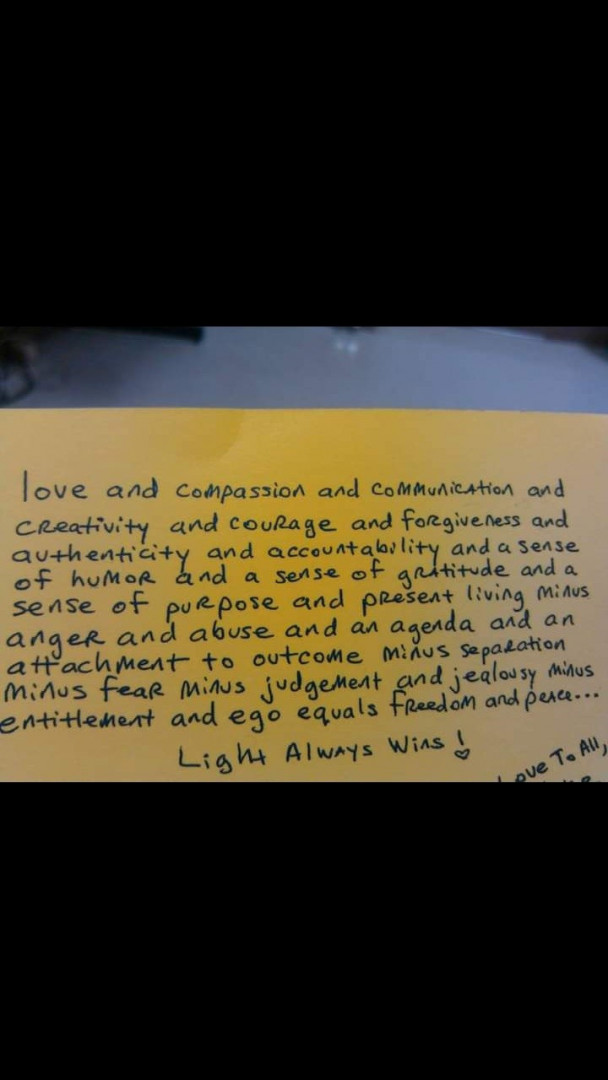 love and compassion and communication and
creativity and courage and forgiveness and
authenticity and accountability and a sense
of humor and a sense of gratitude and a
sense of purpose and present living minus
anger and abuse and an agenda and an
attachment to outcome minus separation
minus fear minus judgement and jealousy minus
entitlement and ego equals freedom and peace...
Light Always Wins!
Love To All,